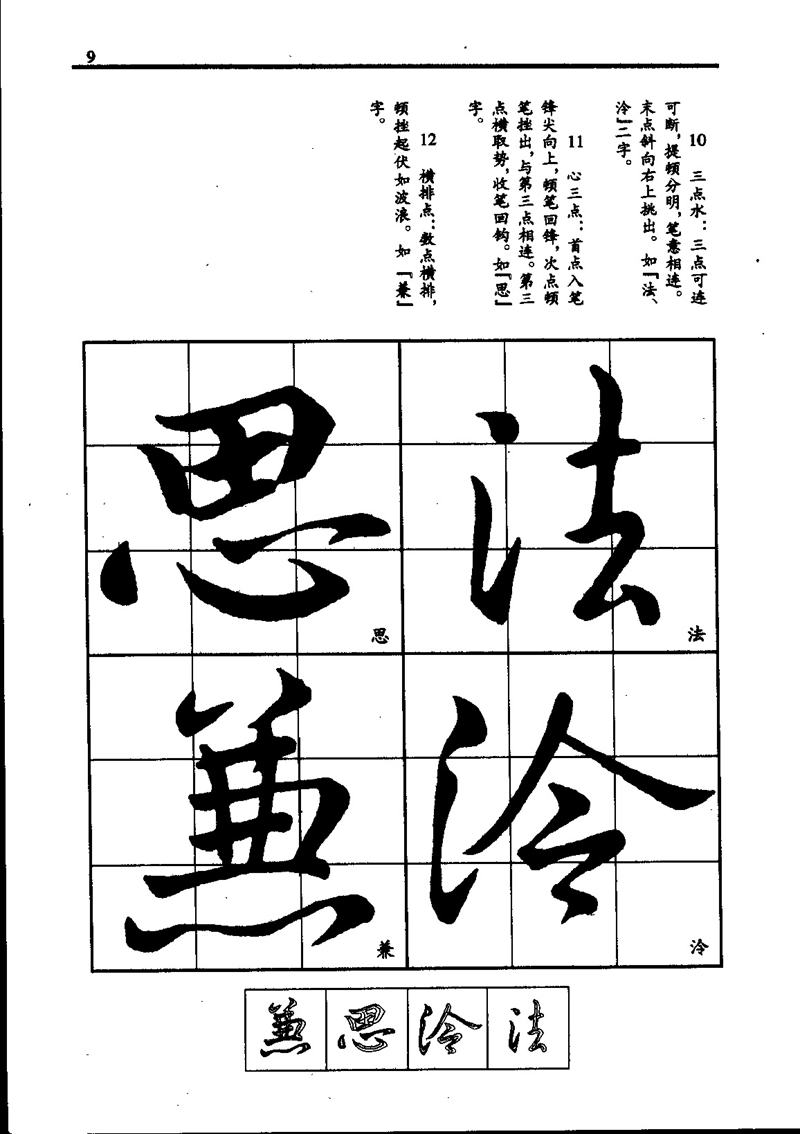 9
10 三点水：三点可连
可断，提顿分明，笔意相连。
末点斜向右上挑出。如『法、
泠』二字。
11 心三点：首点入笔
锋尖向上，顿笔回锋，次点顿
笔挫出，与第三点相连。第三
点横取势，收笔回钩。如『思』
字。
12 横排点：数点横排，
顿挫起伏如波浪。如『兼』
字。
法
法
泠
泠
思
思
兼
兼
兼 思 泠 法